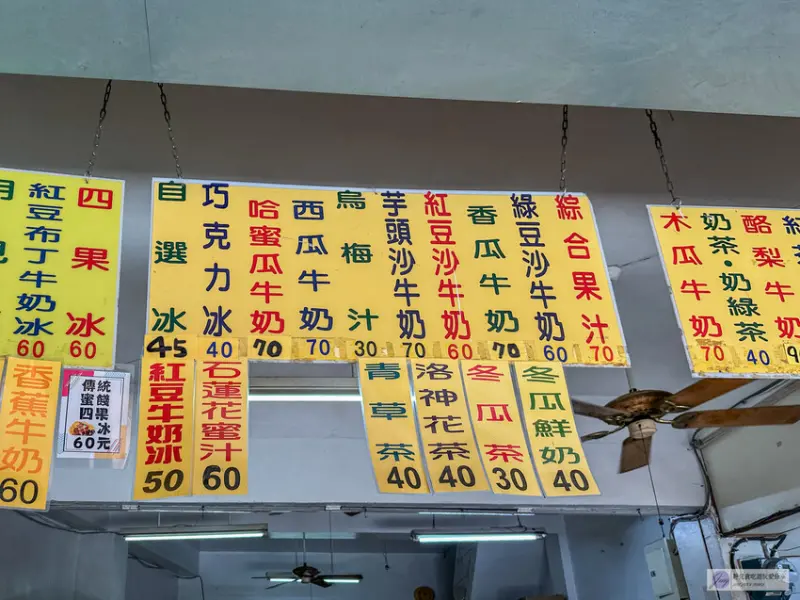 綜合果汁 70
綠豆沙牛奶 60
香瓜牛奶 70
紅豆沙牛奶 60
芋頭沙牛奶 70
烏梅汁 30
西瓜牛奶 70
哈蜜瓜牛奶 70
巧克力冰 40
自選冰 45
四果冰 60
紅豆布丁牛奶冰 60
酪梨牛奶
奶茶·奶綠茶 40
木瓜牛奶 70
冬瓜鮮奶 40
冬瓜茶 30
洛神花茶 40
青草茶 40
石蓮花蜜汁 60
紅豆牛奶冰 50
傳統
蜜餞
四果
冰
60元
香蕉牛奶 60